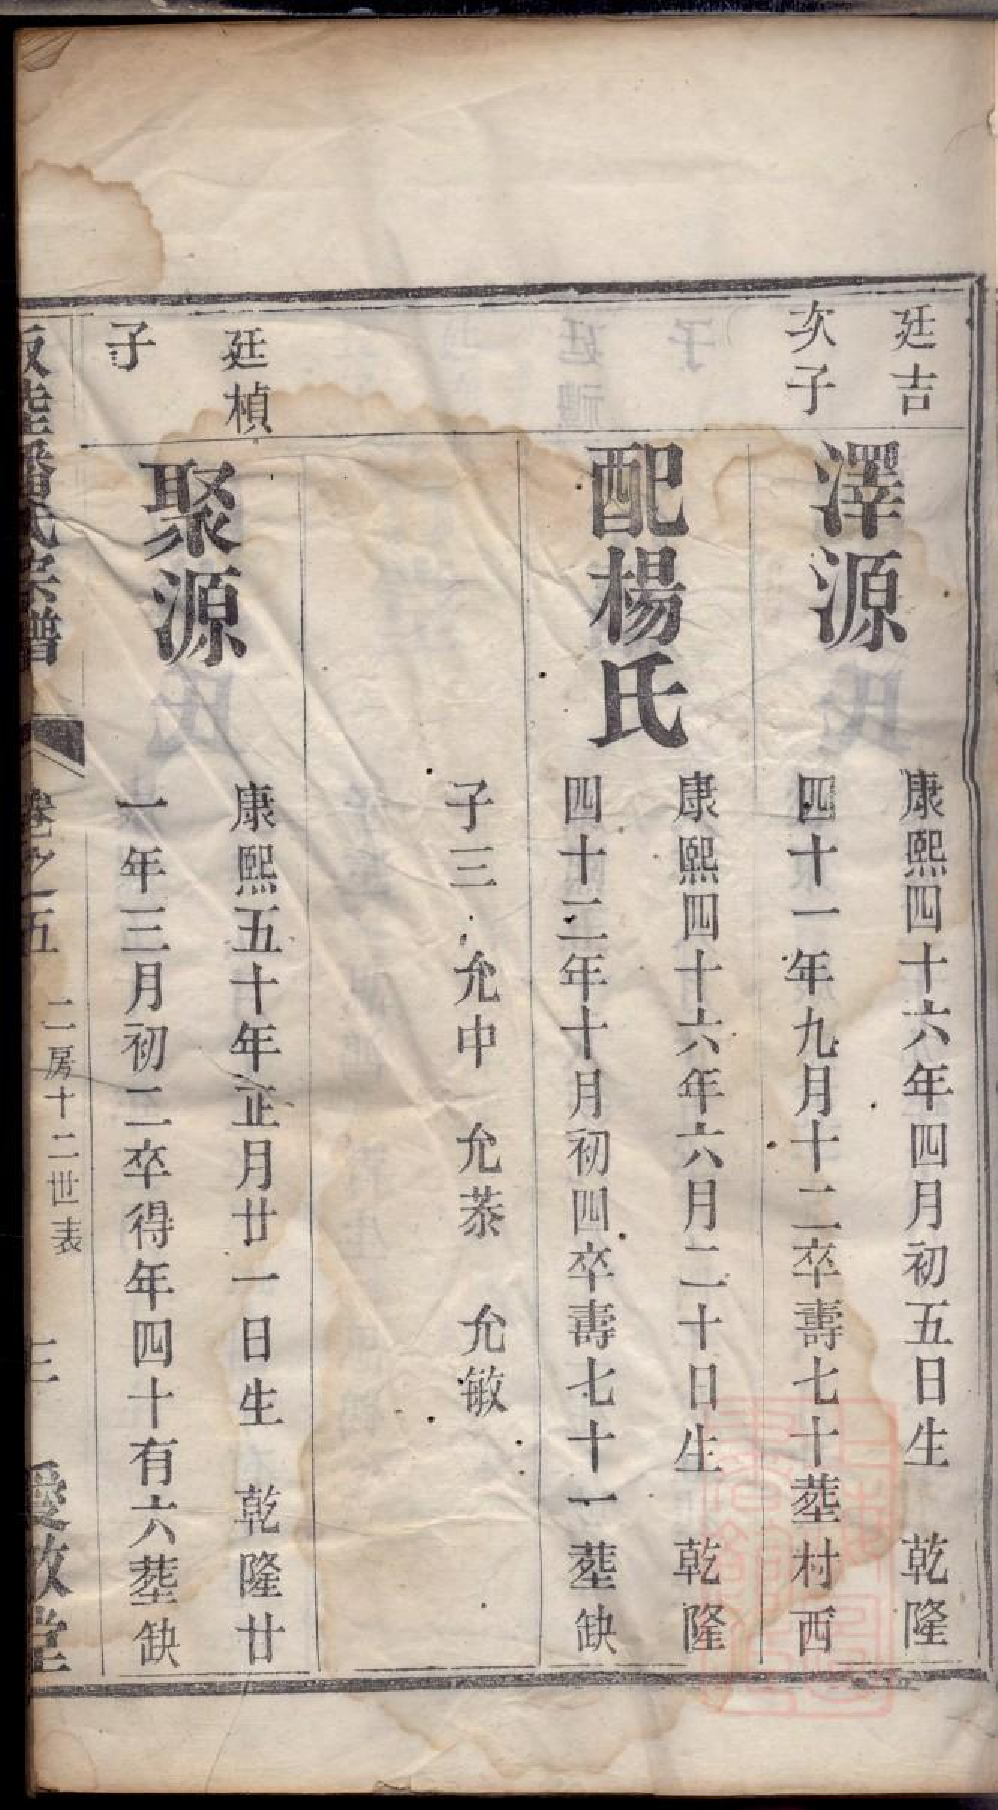 廷吉
次子
澤源
康熙四十六年四月初五日生 乾隆
四十一年九月十二卒壽七十塟村西
配楊氏
康熙四十六年六月二十日生 乾隆
四十二年十月初四卒壽七十一塟缺
子三 允中 允恭 允敏
廷楨
子
聚源
康熙五十年正月廿一日生 乾隆廿
一年三月初二卒得年四十有六塟缺
潘氏宗譜
卷之五
二房十二世表
三
愛敬堂